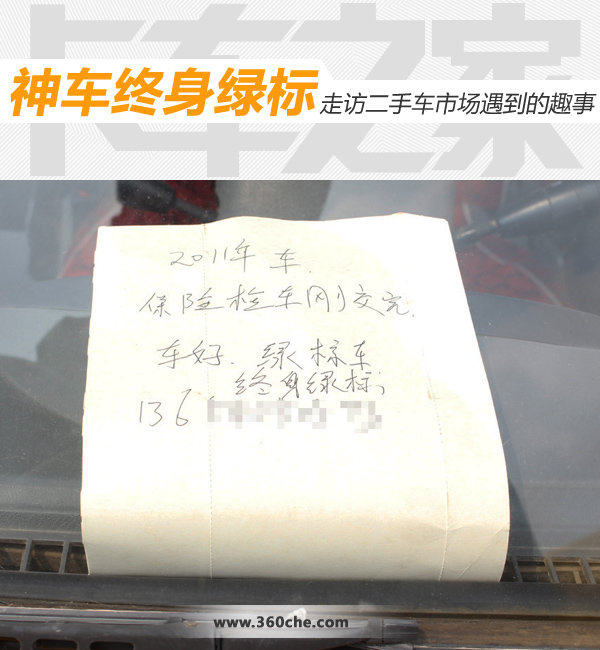 卡车之家
神车终身绿标 走访二手车市场遇到的趣事
2011年 车.
保险检车刚交完.
车好. 绿标车
终身绿标,
136
www.360che.com